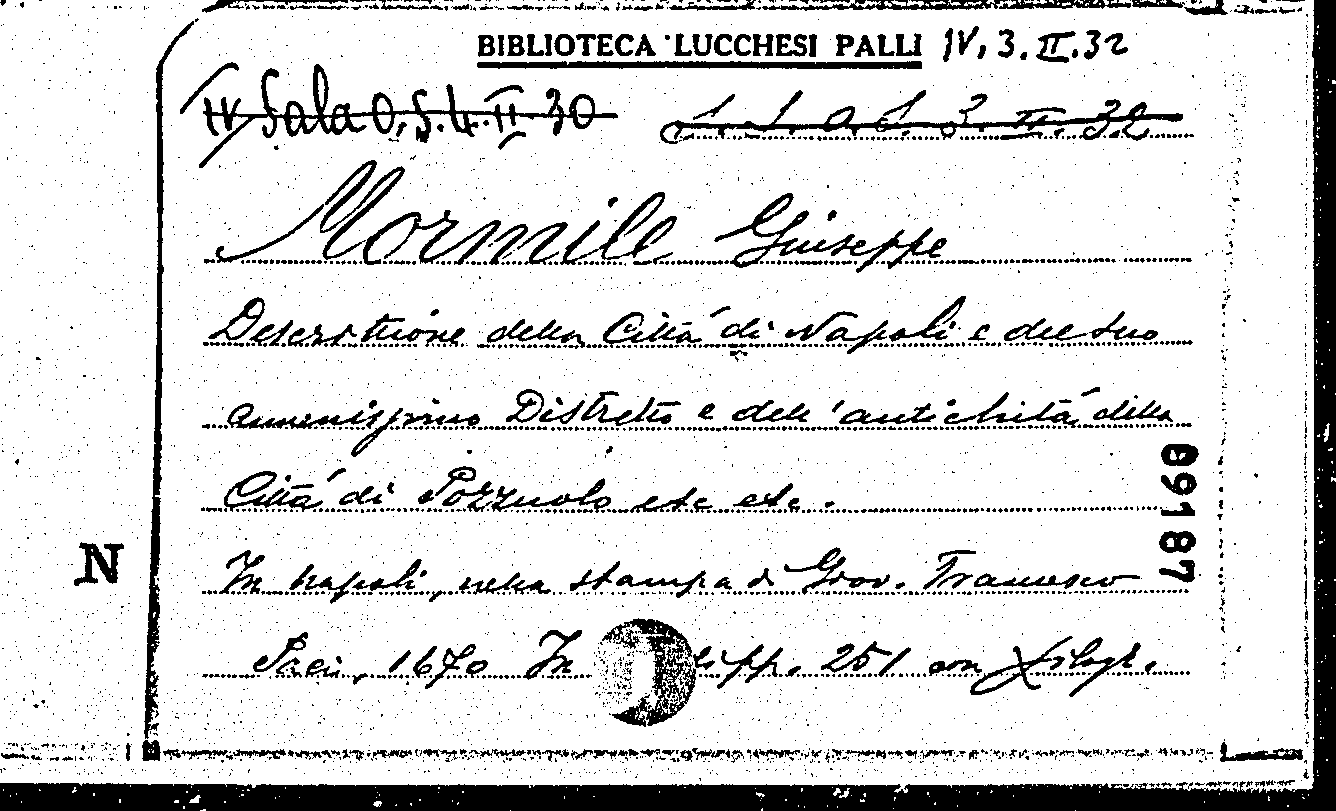 BIBLIOTECA LUCCHESI PALLI IV, 3. II. 32
IV Sala O. S. 4. II. 30 3. II. 32
Mormile Giuseppe
Descrittione della Città di Napoli e del suo
amenissimo Distretto e dell'antichità della
Città di Pozzuolo etc etc.
In Napoli, nella stampa di Giov. Francesco
Paci, 1670 In pp. 251 con xilogr.
09187
N